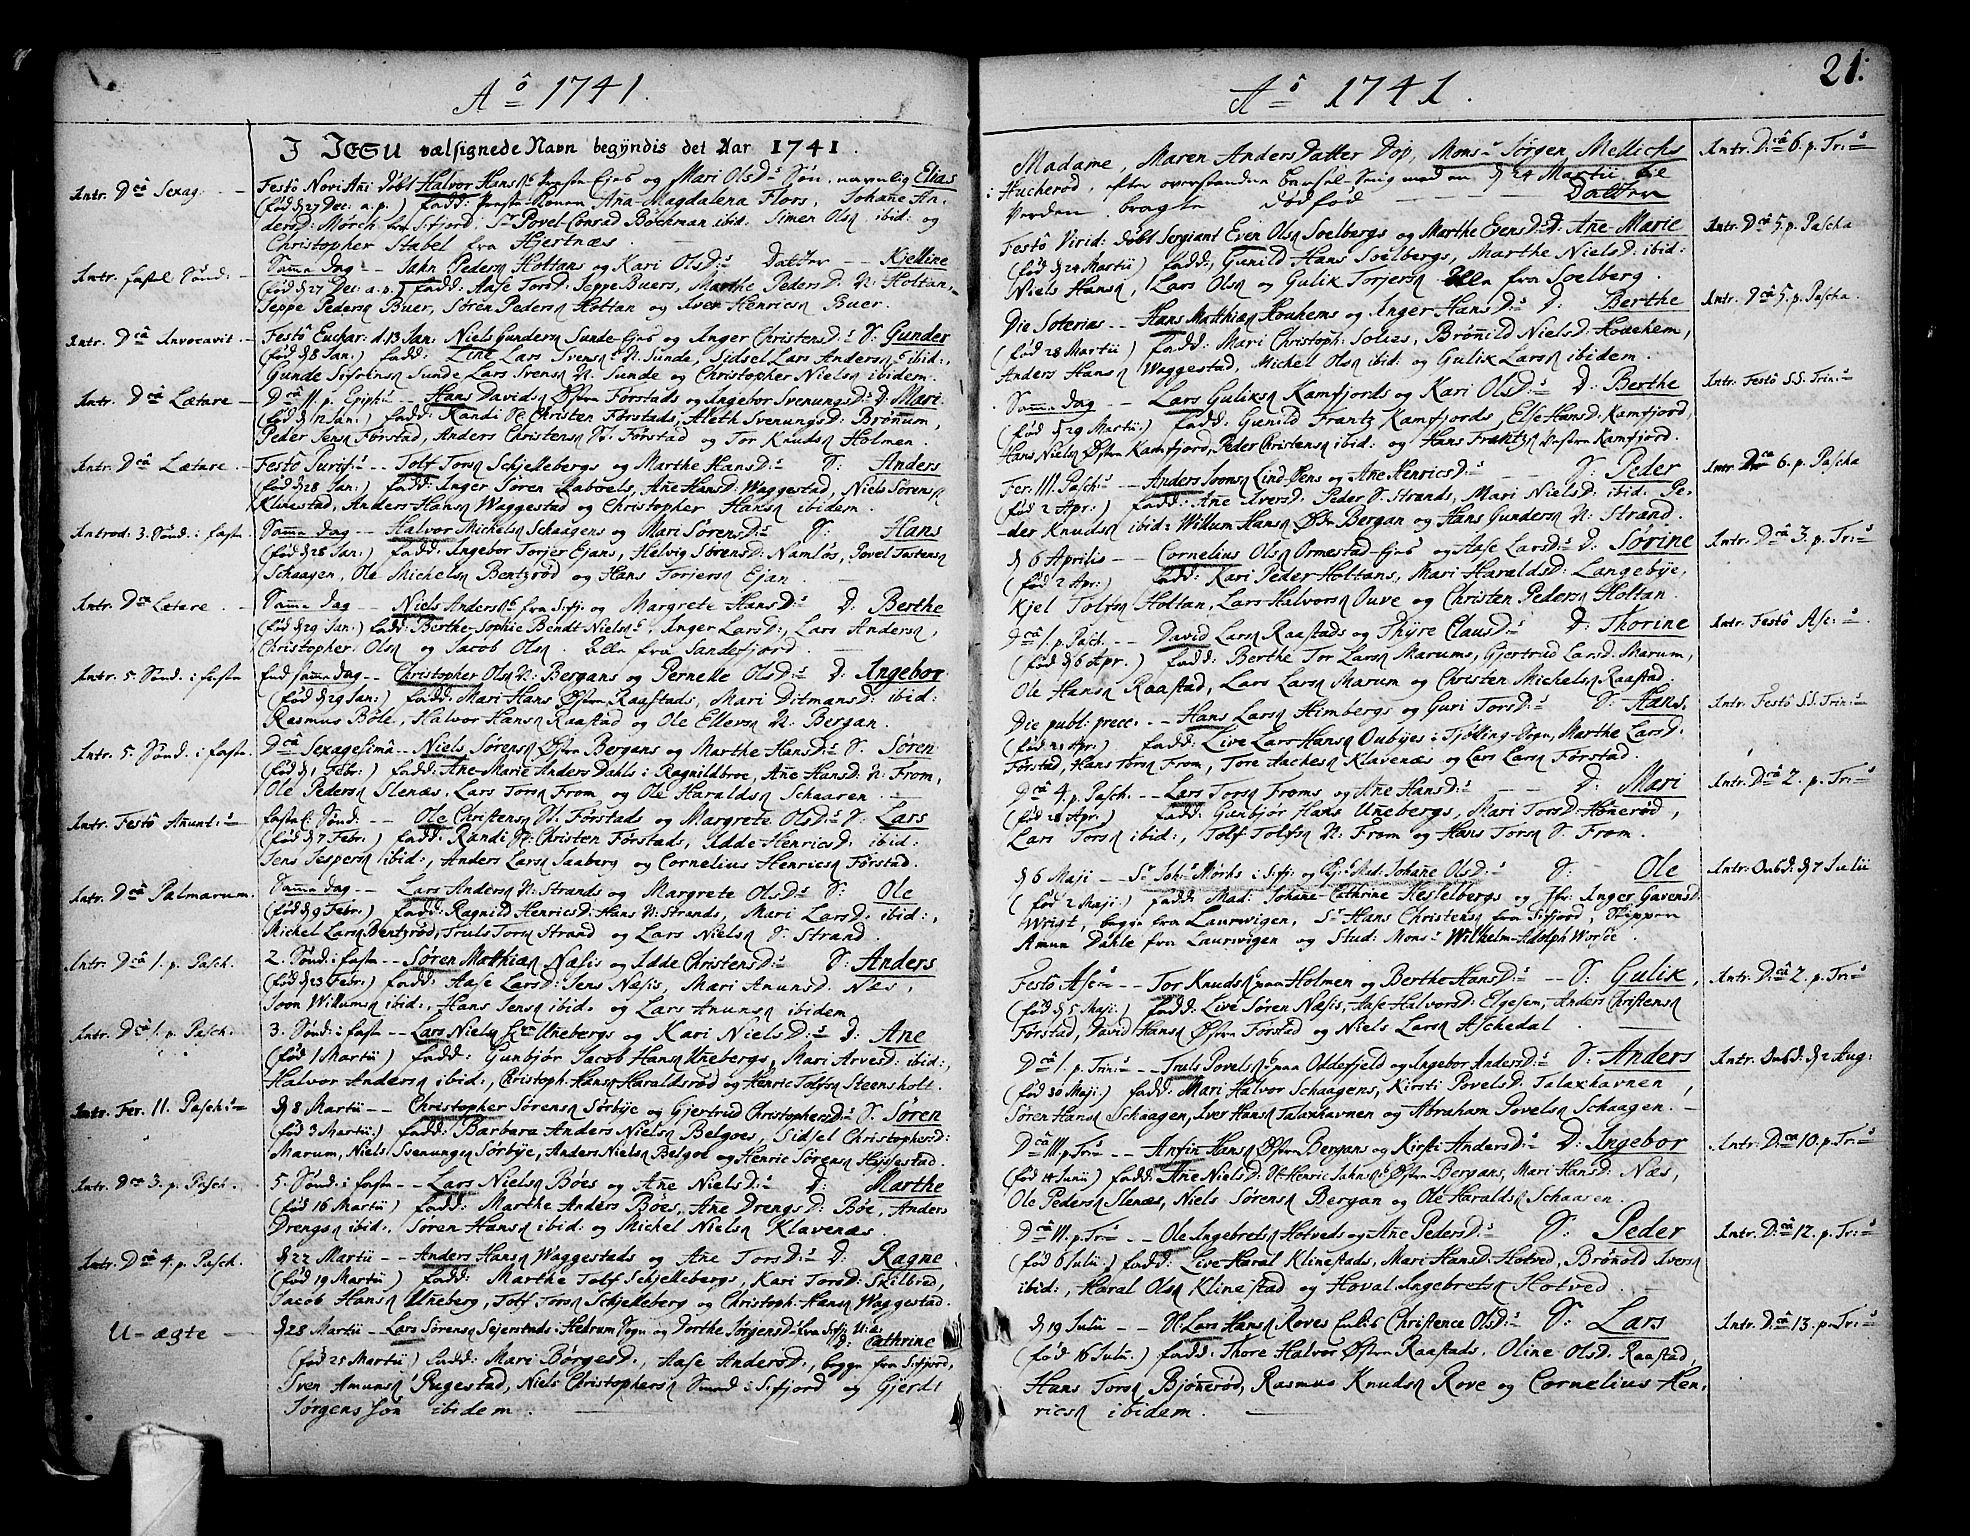 Aõ 1741.
I JESU velsignede Navn begÿndis det Aar 1741.
Intr. Dcâ Sexag.
Festô Novi Añi døbt Halvor Hans Søn, navnlig Elias
(fød d 27 Dec: a. p.) fadd: Ana Magdalena Flors, Johañe An-
ders D: Mörch fra Sifjord, Sr Povel Conrad Böchman ibid. Simen Ols ibid: og
Christopher Stabel fra Hjertnæs.
Intr. fastel. Sönd:
Samme dag -- Jahn Peders Holtans og Kari Ols D: Datter -- Kjelline
(fød d 27 Dec: a. p.) fadd: Aase Tors D: Seppe Buers, Marthe Peders D. N: Holtan,
Seppe Peders Buer, Sören Peders Holtan og Iver Henrics Buer.
Intr. Dcâ Invocavit
Festô Euchar: d. 13 Jan. Niels Gunders Sunde og Inger Christens D: S: Gunder
(fød d 8 Jan:) fadd: Line Lars Svens N: Sunde, Sidsel Lars Anders ibid:,
Gunde Sunde Lars Svens N: Sunde og Christopher Niels ibidem.
Intr. Dcâ Lætare
Dcâ 11. p. Epiph: -- Hans Davids Østre Förstads og Ingebor Svenungs D: D: Mari
(fød d 12 Jan:) fadd: Randi Christen Förstads, Aleth Svenungs D: Brönum,
Peder Jens Förstad, Anders Christens N: Förstad og Tor Knuds Holmen.
Intr. Dcâ Lætare
Festô Purif: -- Tolf Tors Schjellebergs og Marthe Hans D: S: Anders
(fød d 28 Jan:) fadd: Inger Sören Labvels, Añe Hans D: Waggestad, Niels Sörens
Klinestad, Anders Hans Waggestad og Christopher Hans ibidem.
Introd. 3. Sönd: i faste
Samme dag -- Halvor Michels Schaagens og Mari Sörens D: S: Hans
(fød d 28 Jan.) fadd: Ingebor Torjer Ejans, Helvig Sörens D: Namlös, Povel Tastens
Schaagen, Ole Michels Bentzröd og Hans Torjers Ejan.
Intr. Dca Lætare
Samme dag -- Niels Anders fra Sifj. og Margrete Hans D: D: Berthe
(fød d 29 Jan:) fadd: Berthe-Sophie Bendt Niels, Inger Lars D:, Lars Anders,
Christopher Ols og Jacob Ols. alle fra Sandefjord.
Intr. 5. Sönd: i faste
End samme dag -- Christopher Ols N: Bergans og Pernelle Ols D: D: Ingebor
(fød d 29 Jan:) fadd: Mari Hans Østre Raastads, Mari Ditmans D: ibid:
Rasmus Böle, Halvor Hans Raastad og Ole Ellevs N: Bergan.
Intr. 5. Sönd: i faste
Dcâ Sexagesima -- Niels Sörens Østre Bergans og Marthe Hans D: S: Sören
(fød d 1 Febr:) fadd: Ane-Marie Anders Dahls i Ragnildroe, Añe Hans D: N: From,
Ole Peders Slenæs, Lars Tors From og Ole Haralds Schaaren.
Intr. Festô Añunt:
fastel: Sönd: -- Ole Christens N: Förstads og Margrete Ols D: S: Lars
(fød d 7 Febr:) fadd: Randi Christen Förstads, Idde Henrics D: ibid:
Jens Jespers ibid:, Anders Lars Saaberg og Cornelius Henrics Förstad.
Intr. Dcâ Palmarum.
Samme dag -- Lars Anders N: Strands og Margrete Ols D: S: Ole
(fød d 9 Febr:) fadd: Ragnild Henrics D: Hans N: Strands, Mari Lars D: ibid:,
Michel Lars Bentzröd, Truls Tors Strand og Lars Niels S: Strand.
Intr. Dcâ 1. p. Pasch.
2. Sönd: i faste -- Sören Mathias Nælis og Idde Christens D: S: Anders
(fød d 23 Febr:) fadd: Aase Lars D: Jens Næsis, Mari Amuns D: Næs,
Soon Willums ibid:, Hans Jens ibid: og Lars Anuns ibidem
Intr. Dcâ 1. p. Pasch.
3. Sönd: i faste -- Lars Niels Unebergs og Kari Niels D: D: Ane
(fød 1 Martii) fadd: Gunbjör Jacob Hans Unebergs, Mari Arves D: ibid:,
Halvor Anders ibid:, Christoph: Hans Haraldsröd og Henric Tolfs Steensholt.
Intr. Fer. 11. Pasch:
d 8 Martii -- Christopher Sörens Sörbÿe og Gjertrud Christophers D: S: Sören
(fød 3 Martii) fadd: Barbara Anders Niels Belgoes, Sidsel Christophers D:
Marum, Niels Svenungs Sörbÿe, Anders Niels Belgoe og Henric Sörens Hÿssestad.
Intr. Dca 3. p. Pasch.
5. Sönd: i faste -- Lars Niels Böes og Ane Niels D: D: Marthe
(fød 16 Martii) fadd: Marthe Anders Böes, Ane Drengs D: Böe, Anders
Drengs ibid:, Sören Hans ibid: og Michel Niels Klavenæs
Intr. Dca 4. p. Pasch.
d 22 Martii -- Anders Hans Waggestads og Añe Tors D: D: Ragne
(fød 19 Martii) fadd: Marthe Tolf Schjellebergs, Kari Tors D: Skilbred,
Jacob Hans Uneberg, Tolf Tors Schjelleberg og Christoph: Hans Waggestad.
U-ægte
d 28 Martii -- Lars Sörens Sejerstads i Hedrum Sogn og Dorthe Jörgens D: fra Sifj: U. æ. D: Cathrine
(fød 25 Martii) fadd: Mari Börges D:, Aase Anders D:, begge fra Sifjord,
Sven Amuns Pugestad, Niels Christophers Smed i Sifjord og Gjerdt
Jörgens Søn ibidem.
Aõ 1741.
21.
Madame, Maren Anders Datter Dop, Monsr Jörgen Mellichs
i Hucheröd, efter overstanden Barsel-Seng med en d 24 Martii til
Verden bragte dödfød Datter
Intr. D:câ 6. p. Tri:
Festô Virid: döbt Sergiant Even Ols Soelbergs og Marthe Evens D: D: Añe Marie
(fød d 24 Martii) fadd:, Gunild Hans Soelbergs, Marthe Niels D: ibid:
Niels Hans, Lars Ols og Gulik Torjers alle fra Soelberg.
Intr. Dcâ 5. p. Pascha
Die Soterias -- Hans Matthias Houhems og Inger Hans D: D: Berthe
(fød 28 Martii) fadd: Mari Christoph: Solies, Brönild Niels D: Hovehem,
Anders Hans Waggestad, Michel Ols ibid: og Gulik Lars ibidem.
Intr. Dcâ 5. p. Pascha.
Samme dag -- Lars Guliks Kamfjords og Kari Ols D: D: Berthe
(fød d 29 Martii:) fadd: Gunild Frantz Kamfjords, Else Hans D: Kamfjord,
Hans Niels Østre Kamfjord, Peder Christens ibid: og Hans Frantz Vestre Kamfjord.
Intr. Festô S.S. Trin:
Fer. III. Pasch: -- Anders Soons Lind-Öens og Ane Henrics D: S: Peder
(fød 2 Apr:) fadd: Añe Ivers D: Peder S: Strands, Mari Niels D: ibid: Pe-
der Knuds ibid: Willum Hans Bergan og Hans Gunders N: Strand.
Intr. Dca 6. p. Pascha
d 6 Aprilis -- Cornelius Ols Ormestad og Aase Lars D: D: Sörine
(fød 2 Apr:) fadd: Kari Peder Holtans, Mari Haralds D: Langebÿe,
Kjel Tolfs Holtan, Lars Halvors Ouve og Christen Peders Holtan.
Intr. D:câ 3. p. Tri:
Dcâ 1. p. Pasch. -- David Lars Raastads og Thÿre Claus D: D: Thorine
(fød d 6 Apr:) fadd: Berthe Tor Lars Marums, Gjertrud Lars D: Marum,
Ole Hans Raastad, Lars Lars Marum og Christen Michels Raastad.
Intr. Festô Asc:
Die publ: prec: -- Hans Lars Himbergs og Guri Tors D: S: Hans.
(fød 21 Apr:) fadd: Live Lars Hans Oubÿes i Tjölling-Sogn, Marthe Lars D:
Förstad, Hans Tors From, Tore Aaches Klavenæs og Lars Lars Förstad.
Intr. Festô S.S. Trin:
Dcâ 4. p. Pasch. -- Lars Tors Froms og Ane Hans D: D: Mari
(fød 28 Apr:) fadd: Gunbjör Hans Unebergs, Mari Tors D: Höneröd,
Lars Tors ibid:, Tolf Tolfs N: From og Hans Tors S: From.
Intr. D:câ 2. p. Tri:
d 6 Maji -- Sr Joh: Mörks i Sifj: og Mad: Johañe Ols D: S: Ole
(fød 2 Maji.) fadd: Mad: Johañe-Cathrine Hesselbergs og Jfr: Inger Gavens D:
Wrigt, begge fra Laurwigen, Sr Hans Christens fra Sifjord, Skipper
Amun Dahle fra Laurwigen og Stud: Monsr Wilhelm-Adolph Worsöe.
Intr. Onsd: d 7 Julii
Festo Asc: -- Tor Knuds paa Holmen og Berthe Hans D: -- S: Gulik,
(fød d 5 Maji.) fadd: Live Sören Næsis, Aase Halvors D: Elgesem, Anders Christens
Förstad, David Hans Østre Förstad og Niels Lars Aschedal.
Intr. D:câ 2. p. Tri:
Dcâ 1. p. Trin: -- Truls Povels paa Odderfjeld og Ingebor Anders D: S: Anders
(fød 30 Maji.) fadd: Mari Halvor Schaagens, Kirsti Povels D: Talaxhavnen,
Sören Hans Schaagen, Iver Hans Talaxhavnen og Abraham Povels Schaagen.
Intr. Onsd: d 2 Aug:
Dca III. p. Tri: -- Anfin Hans Østre Bergans og Kirsti Anders D: D: Ingebor
(fød 14 Junii) fadd: Añe Niels D: Henric Jahns Østre Bergans, Mari Hans D: Næs,
Ole Peders Slenæs, Niels Sörens Bergan og Ole Haralds Schaasen.
Intr: D:ca 10. p. Tri:
Dcâ VI. p. Tri: -- Ole Ingebrets Hotveds og Ane Peders D: S: Peder
(fød 6 Julii) fadd: Live Haral Klinestads, Mari Hans D: Hotved, Brönold Ivers
ibid:, Haral Ols Klinestad og Hoval Ingebrets Hotved.
Intr. D:câ 12. p. Tri:
d 19 Julii -- Lars Hans Roves og Christence Ols D: S: Lars
(fød 16 Julii.) fadd: Thore Halvor Østre Raastads, Oline Ols D. Raastad,
Hans Tors Bjöneröd, Rasmus Knuds Rove og Cornelius Hen-
rics ibidem.
Intr. D:câ 13. p. Tri: